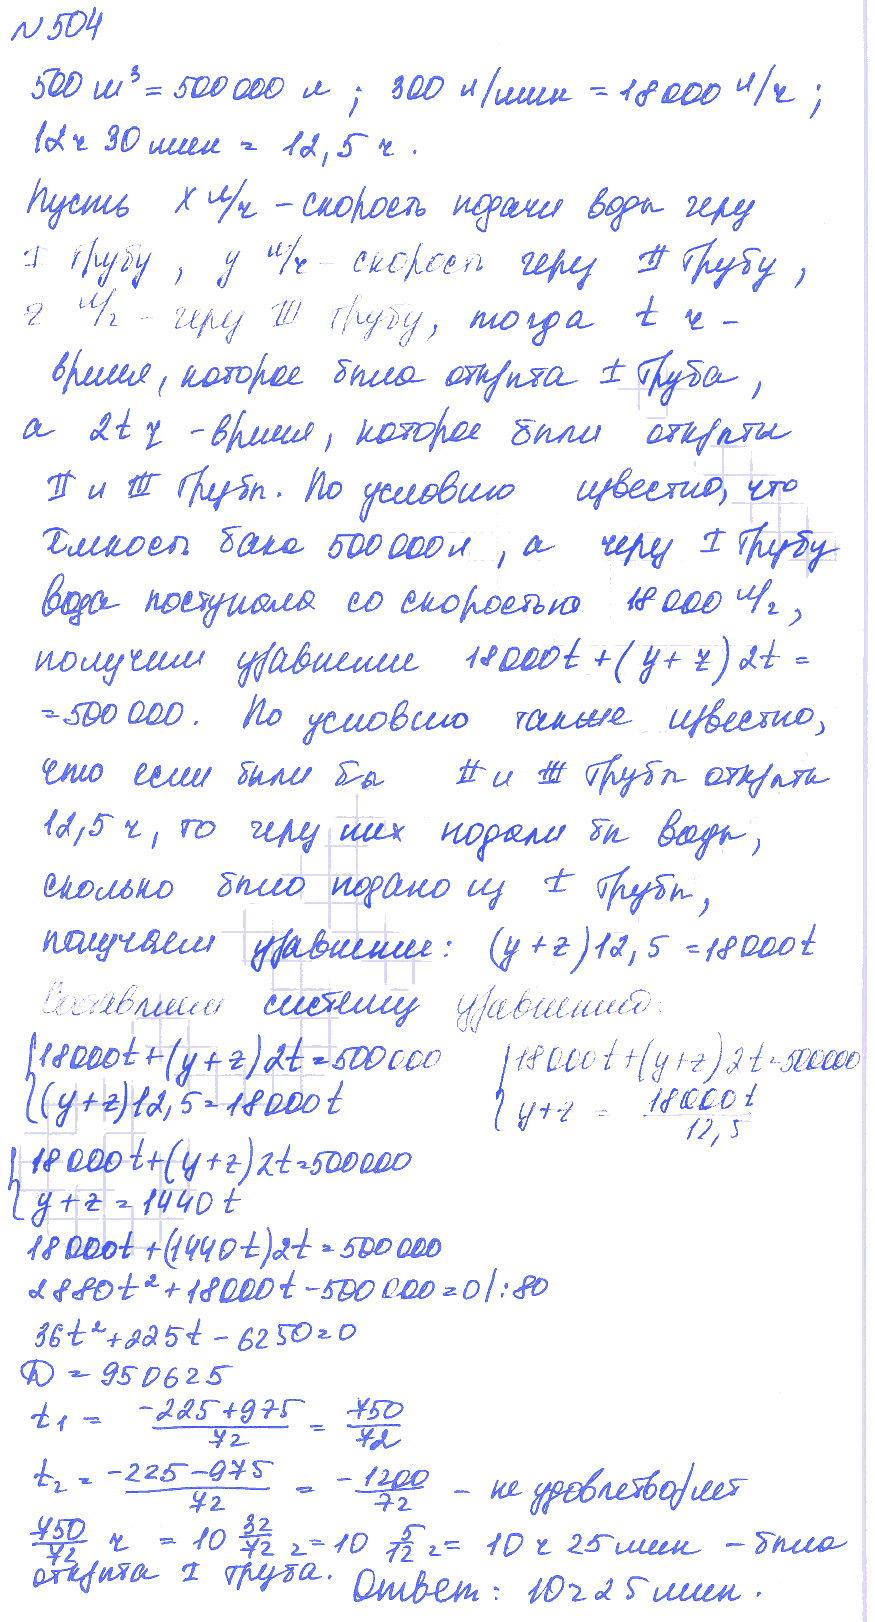 № 504
500 м³ = 500 000 л ; 300 л/мин = 18 000 л/ч ;
12 ч 30 мин = 12,5 ч .
Пусть x л/ч – скорость подачи воды через
I трубу , y л/ч – скорость через II трубу ,
z л/ч – через III трубу, тогда t ч –
время, которое была открыта I труба ,
а 2t ч – время, которое были открыты
II и III трубы. По условию известно, что
ёмкость бака 500 000 л , а через I трубу
вода поступала со скоростью 18 000 л/ч ,
получим уравнение 18 000t + (y + z) 2t =
= 500 000. По условию также известно,
что если были бы II и III трубы открыты
12,5 ч, то через них подали бы воды,
сколько было подано из I трубы,
получаем уравнение: (y + z)12,5 = 18 000t
Составим систему уравнений:
{18000t + (y + z) 2t = 500 000 {18 000t + (y + z) 2t = 500000
{(y + z)12,5 = 18 000t {y + z = 18 000 t / 12,5
{18 000t + (y + z) 2t = 500 000
{y + z = 1440t
18 000t + (1440t) 2t = 500 000
2880t² + 18 000t – 500 000 = 0 / : 80
36t² + 225t – 6250 = 0
D = 950625
t₁ = (–225 + 975) / 72 = 750 / 72
t₂ = (–225 – 975) / 72 = –1200 / 72 – не удовлетворяет
750/72 ч = 10 32/72 ч = 10 5/12 ч = 10 ч 25 мин – была
открыта I труба. Ответ: 10 ч 25 мин .